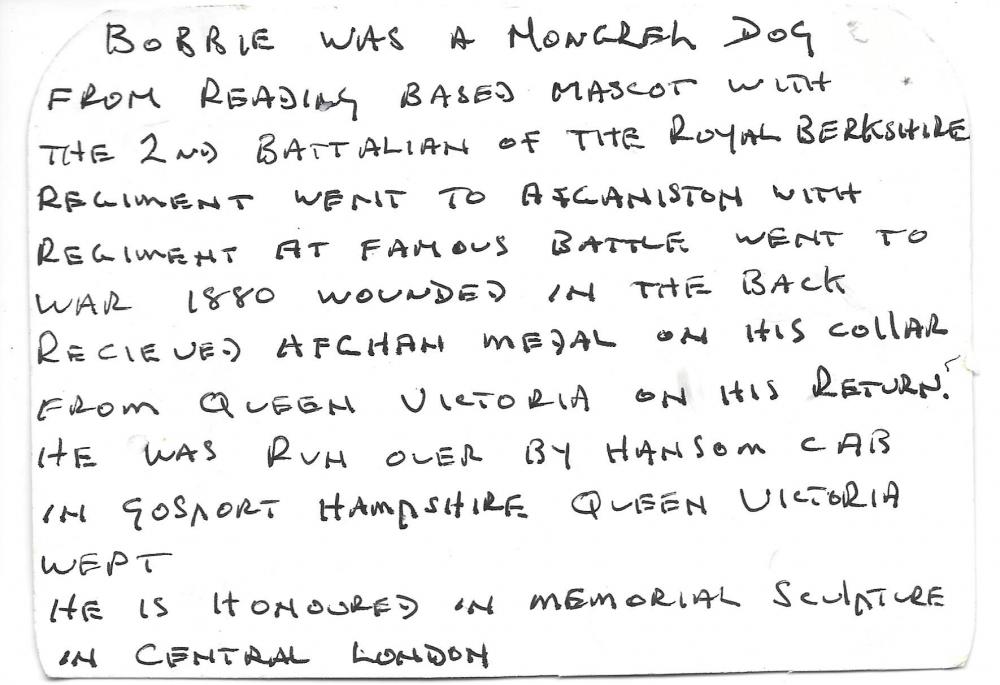 BOBBIE WAS A MONGREL DOG
FROM READING BASED MASCOT WITH
THE 2ND BATTALIAN OF THE ROYAL BERKSHIRE
REGIMENT WENT TO AFGANISTON WITH
REGIMENT AT FAMOUS BATTLE WENT TO
WAR 1880 WOUNDED IN THE BACK
RECIEVED AFGHAN MEDAL ON HIS COLLAR
FROM QUEEN VICTORIA ON HIS RETURN.
HE WAS RUN OVER BY HANSOM CAB
IN GOSPORT HAMPSHIRE QUEEN VICTORIA
WEPT
HE IS HONOURED IN MEMORIAL SCULPTURE
IN CENTRAL LONDON